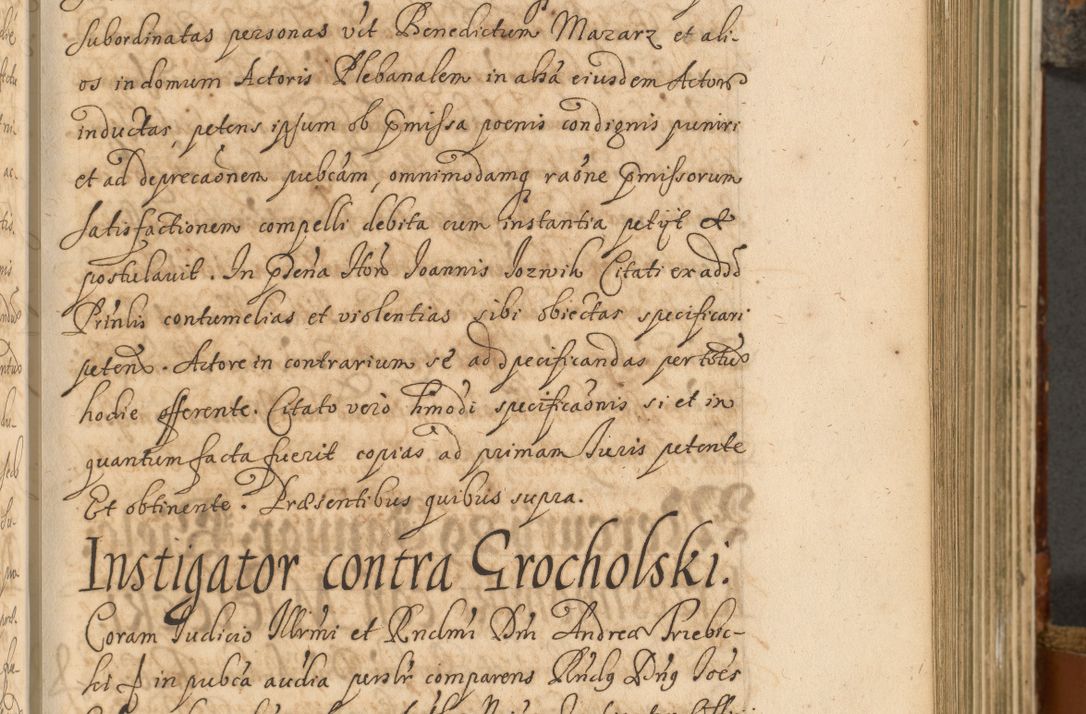 subordinatas personas vẻt Benedictum Mazarz et ali-
os in domum Actoris Plebanalem in absã eiusdem Actoris
inductas, petens ipsum ob p̃missa poenis condignis puniri
et ad deprecaõnem pubcãm, omnimodamq raõne p̃missorum
satisfactionem compelli debita cum instantia petijt et
postulavit. In p̃dẽna Itoñ Ioannis Iozwik Citati ex addõ
Prinlis contumelias et violentias sibi obiectas specificari
peten. Actore in contrarium sẽ ad specificandas per totũ
hodie offerente. Citato vero hmõdi specificaõnis si et in
quantum facta fuerit copias ad primam Iuris petente
Et obtinente. Præsentibus quibus supra.
Instigator contra Grocholski.
Coram Iudicio Illrmi et Rndmi Dni Andreæ Trzebic-
ki in pubca audia psnlr comparens Rndg Dng Ioẽs